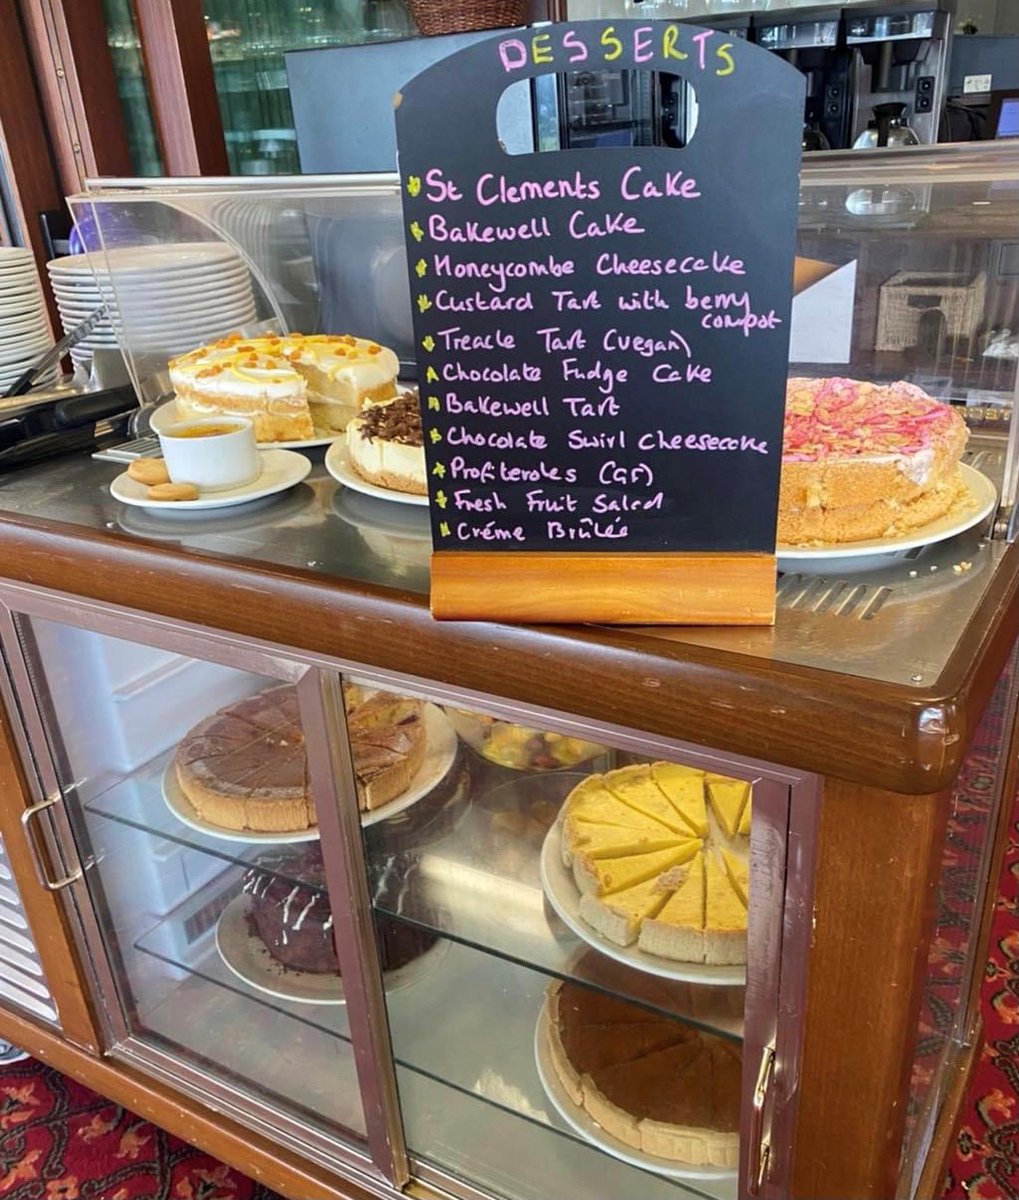 DESSERTS
St Clements Cake
Bakewell Cake
Honeycombe Cheesecake
Custard Tart with berry
compot
Treacle Tart (vegan)
Chocolate Fudge Cake
Bakewell Tart
Chocolate Swirl Cheesecake
Profiteroles (GF)
Fresh Fruit Salad
Créme Brûlée